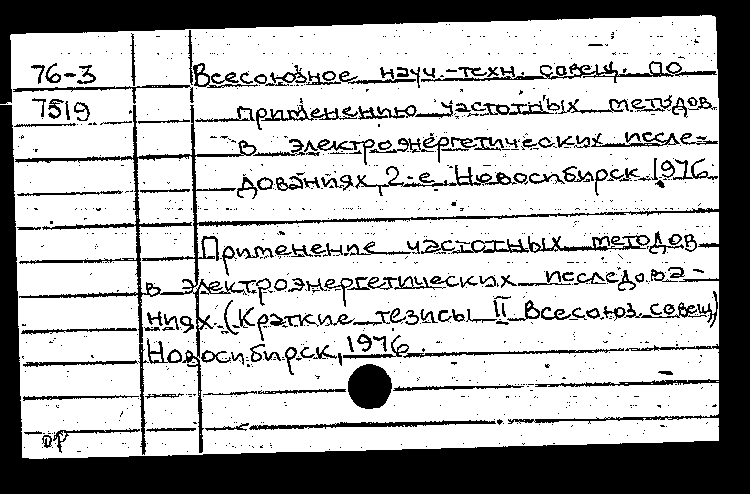 76-3 Всесоюзное науч.-техн. совещ. по
7519 применению частотных методов
в электроэнергетических иссле-
дованиях, 2-е. Новосибирск 1976
Применение частотных методов
в электроэнергетических исследова-
ниях. (Краткие тезисы II Всесоюз. совещ)
Новосибирск, 1976.
ор